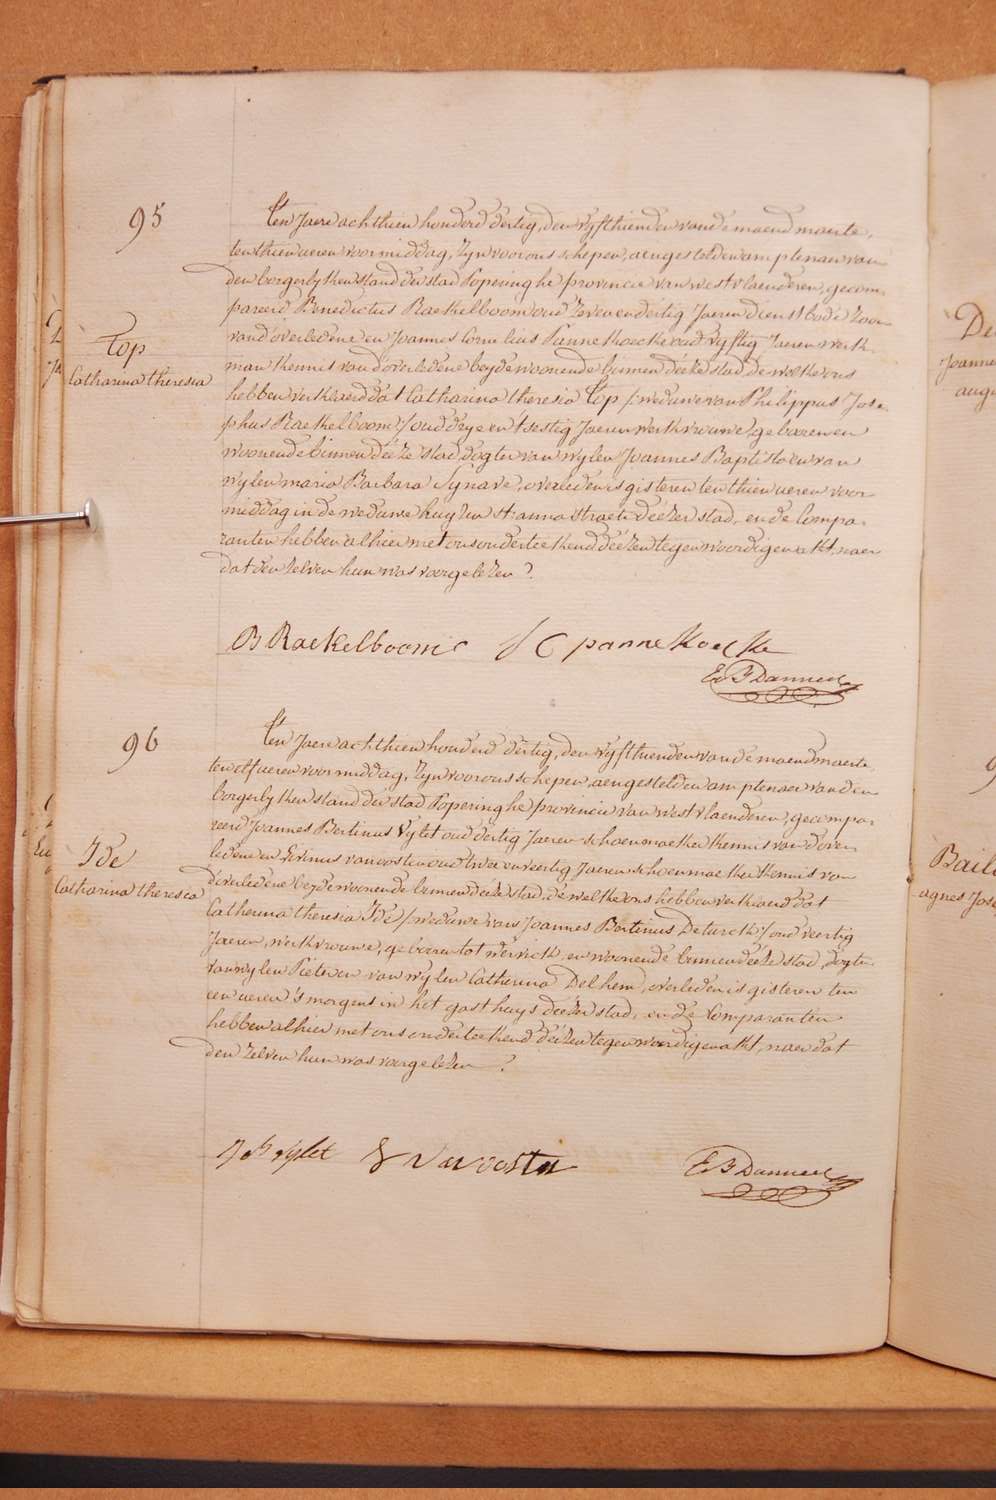 95
Ten Jaere achthien honderd dertig, den vyfthienden van de maend maerte,
ten thien ueren voormiddag, zyn voor ons schepen, aengestelden amptenaer van
den borgerlyken stand der stad Poperinghe provincie van westvlaenderen, gecom-
pareerd Benedictus Raekelboom oud zeven en dertig Jaeren dienstbode zoon
van d'overledene en Joannes Cornelius Pannekoecke oud vyftig Jaeren werk-
man kennis van d'overledene beyde woonende binnen deeze stad, de welke ons
hebben verklaerd dat Catharina theresia Top /:weduwe van Philippus Jose-
phus Raekelboom:/ oud drye en t'sestig Jaeren werkvrouwe, geboren en
woonende binnen deéze stad, dogter van wylen Joannes Baptista en van
wylen maria Barbara Synave, overleden is gisteren ten thien ueren voor-
middag in de weduwe huyzen St annastraete deézer stad, en de Compa-
ranten hebben alhier met ons onderteekend deézen tegenwoordigen akt, naer
dat den zelven hun was voorgelezen.
Top
Catharina theresia
B Raekelboom
J C pannekoecke
E. B Danneel
96
Ten Jaere achthien honderd dertig, den vyfthienden van de maend maerte,
ten elf ueren voormiddag, zyn voor ons schepen, aengestelden amptenaer van den
borgerlyken stand der stad Poperinghe provincie van westvlaenderen, gecompa-
reerd Joannes Bertinus Vylet oud dertig Jaeren schoenmaeker kennis van d'over-
ledene en vanoosten oud twee en veertig Jaeren schoenmaeker kennis van
d'overledene beyde woonende binnen deéze stad, de welke ons hebben verklaerd dat
Catharina theresia Ide /:weduwe van Joannes Bertinus Deturck:/ oud veertig
Jaeren, werkvrouwe, geboren tot wervick, en woonende binnen deéze stad, dogter
van wylen Pieter en van wylen Catherina Delhem, overleden is gisteren ten
een ueren 's morgens in het gasthuys deézer stad, en de Comparanten
hebben alhier met ons onderteekend deézen tegenwoordigen akt, naer dat
den zelven hun was voorgelezen.
Ide
Catharina theresia
vylet
Vanoosten
E. B Danneel
De
Joannes
augu
9
Baill
agnes Jose